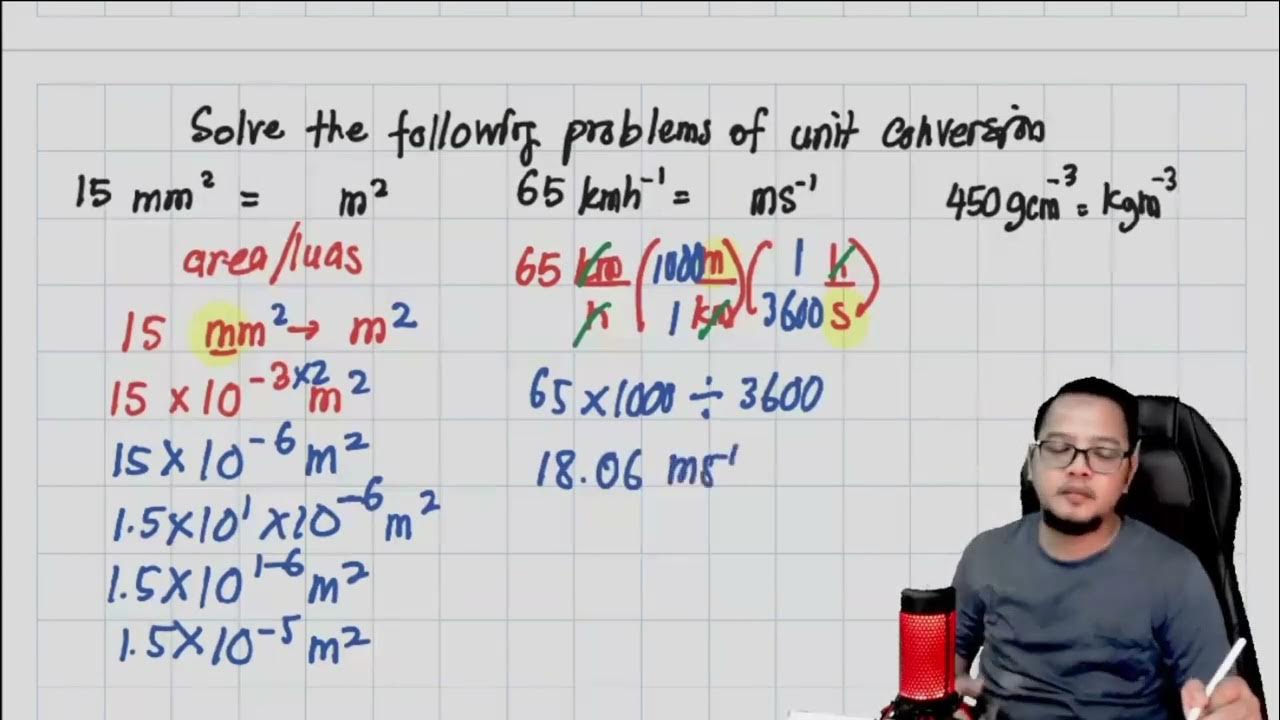 Solve the following problems of unit conversion
15 mm² = m²
area/luas
15 mm² → m²
15 × 10⁻³ˣ² m²
15 × 10⁻⁶ m²
1.5 × 10¹ × 10⁻⁶ m²
1.5 × 10¹⁻⁶ m²
1.5 × 10⁻⁵ m²
65 kmh⁻¹ = ms⁻¹
65 km/h (1000m/1 km) (1 h/3600 s)
65 × 1000 ÷ 3600
18.06 ms⁻¹
450 gcm⁻³ = kgm⁻³